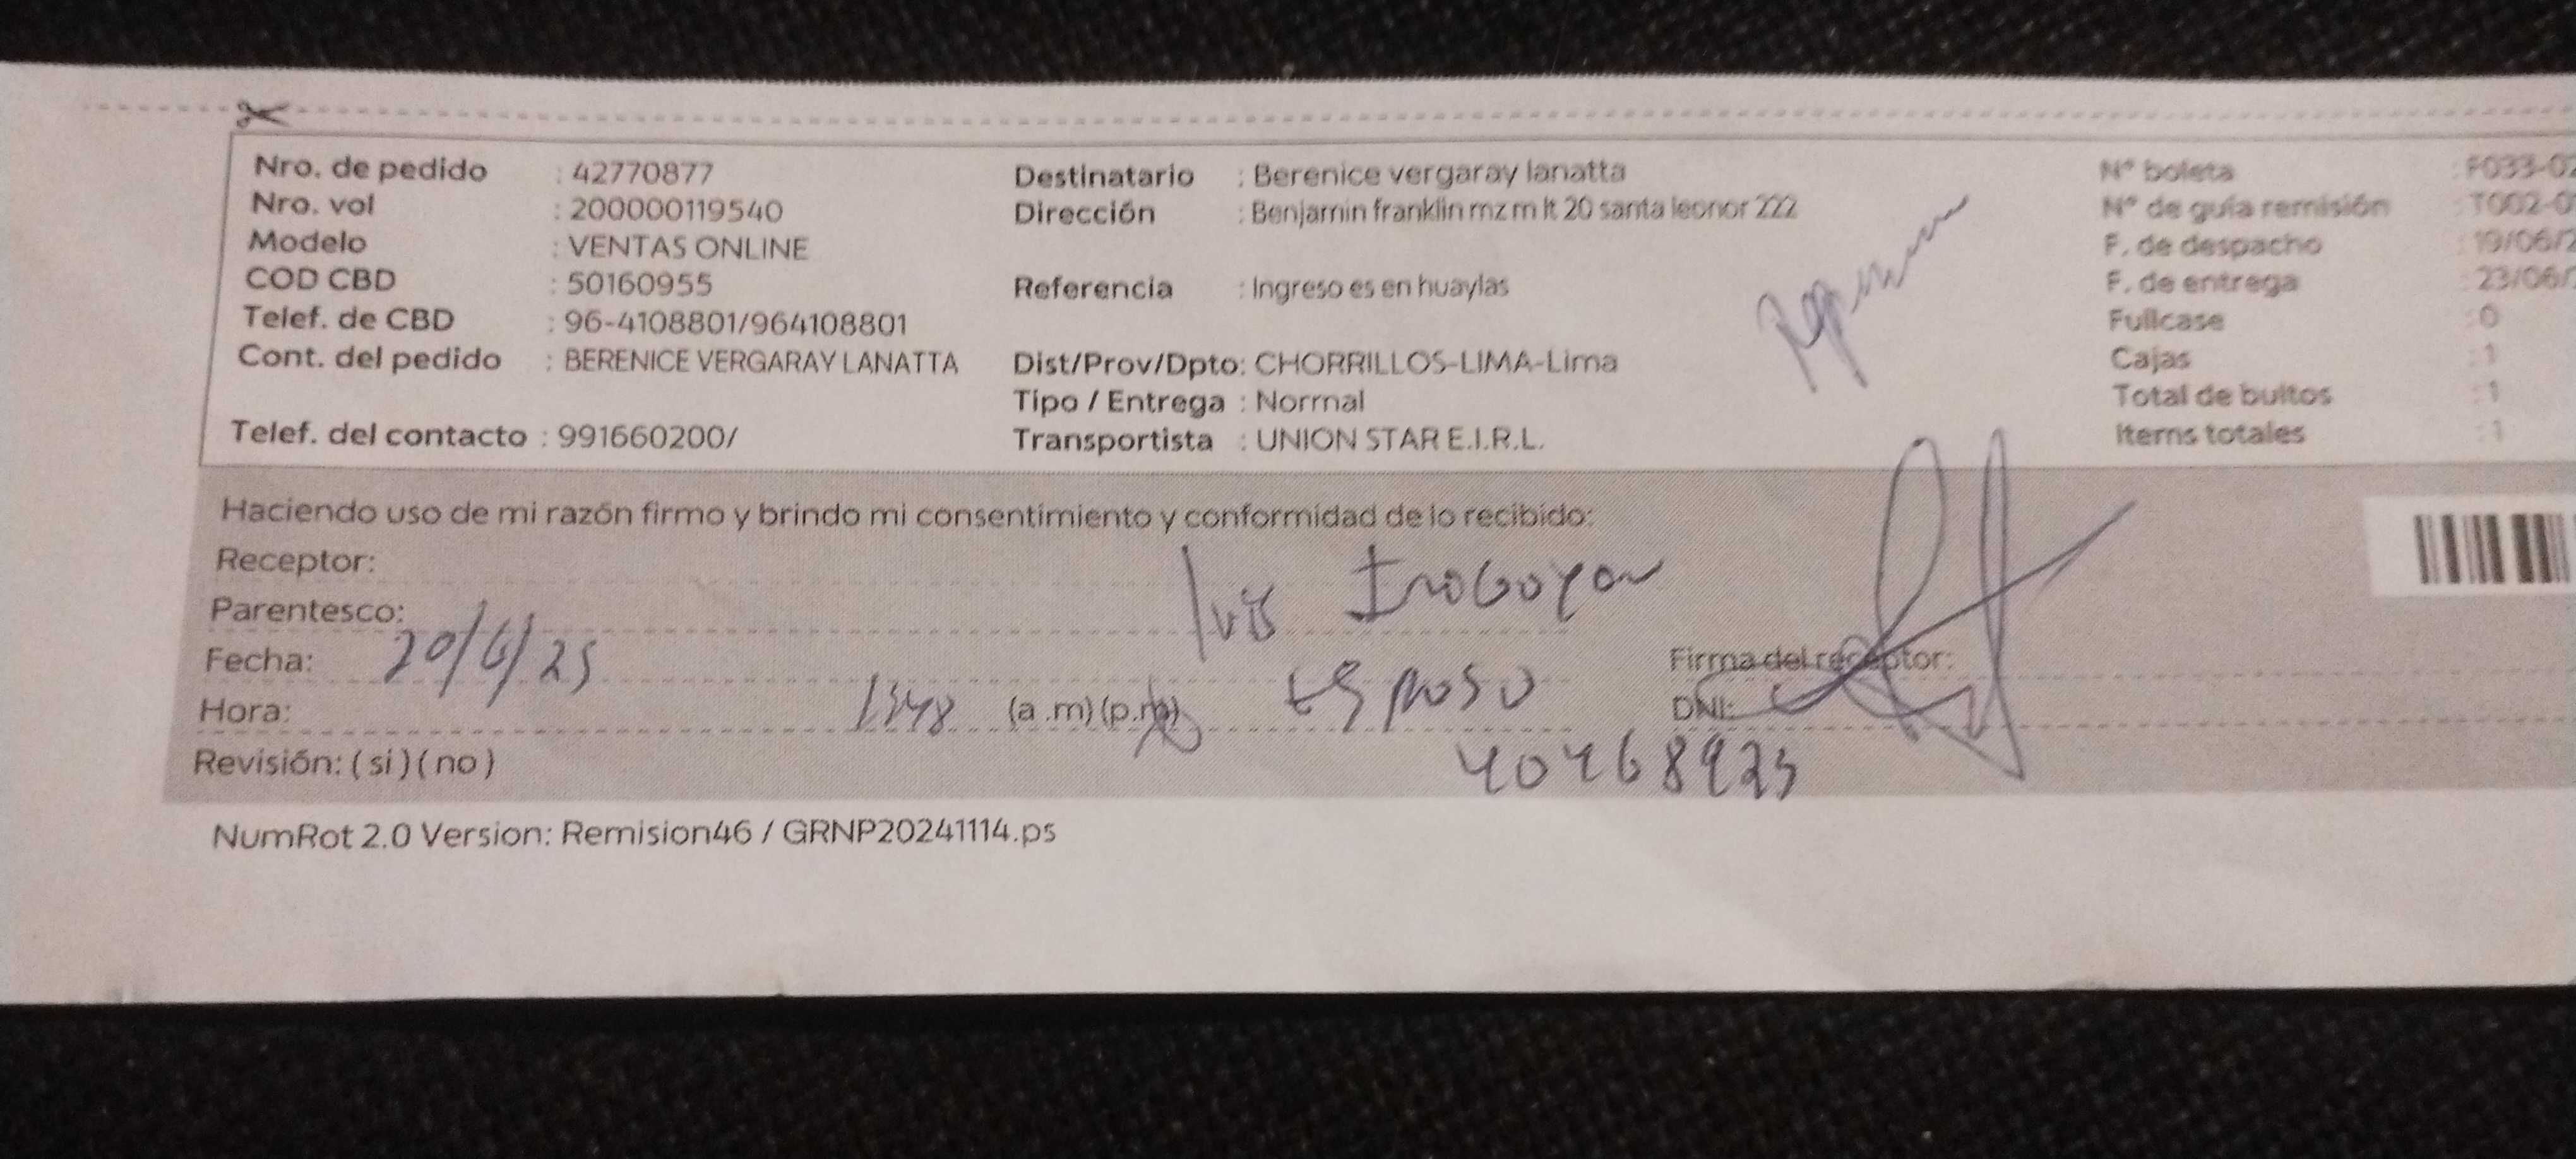 Nro. de pedido : 42770877
Nro. vol : 200000119540
Modelo : VENTAS ONLINE
COD CBD : 50160955
Telef. de CBD : 96-4108801/964108801
Cont. del pedido : BERENICE VERGARAY LANATTA
Telef. del contacto : 991660200/
Destinatario : Berenice vergaray lanatta
Dirección : Benjamin franklin mz m lt 20 santa leonor 222
Referencia : Ingreso es en huaylas
Dist/Prov/Dpto: CHORRILLOS-LIMA-Lima
Tipo / Entrega : Normal
Transportista : UNION STAR E.I.R.L.
N° boleta : F033-02
N° de guía remisión : T002-0
F. de despacho : 19/06/2
F. de entrega : 23/06/
Fullcase : 0
Cajas : 1
Total de bultos : 1
Items totales : 1
Haciendo uso de mi razón firmo y brindo mi consentimiento y conformidad de lo recibido:
Receptor:
Parentesco: Esposo
Fecha: 20/6/25
Hora: (a .m) (p.m)
Firma del receptor:
DNI: 40468925
Revisión: ( si ) ( no )
NumRot 2.0 Version: Remision46 / GRNP20241114.ps